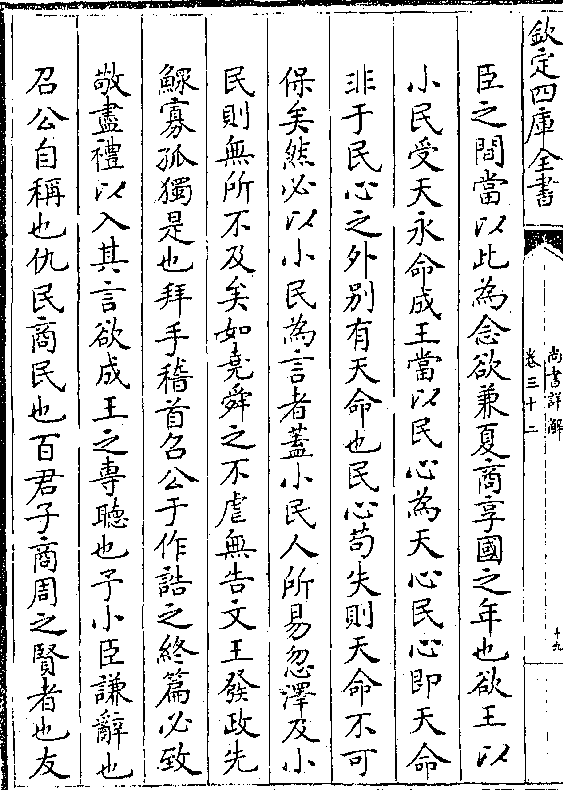 欽定四庫全書
尚書詳解
卷三十二
十九
臣之間當以此為念欲兼夏商享國之年也欲王以
小民受天永命成王當以民心為天心民心即天命
非于民心之外别有天命也民心苟失則天命不可
保矣然必以小民為言者蓋小民人所易忽澤及小
民則無所不及矣如堯舜之不虐無告文王發政先
鰥寡孤獨是也拜手稽首召公于作誥之終篇必致
敬盡禮以入其言欲成王之專聽也予小臣謙辭也
召公自稱也仇民商民也百君子商周之賢者也友